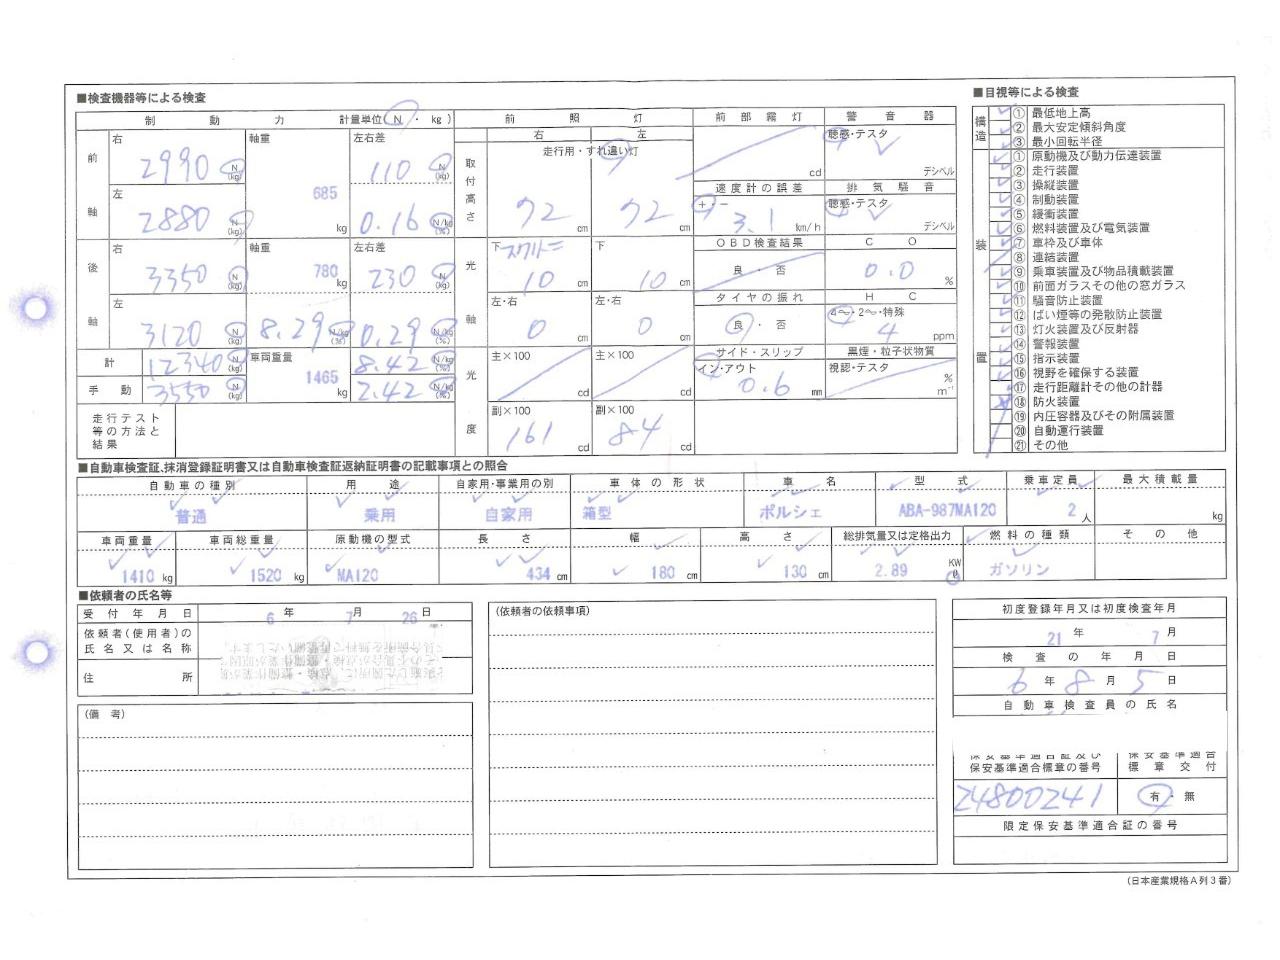 ■検査機器等による検査
制動力 計量単位(N・kg)
前軸 右 2990 N(kg) 軸重 685 kg 左右差 110 N(kg)
左 2880 N(kg) 0.16 N/kg(%)
後軸 右 3350 N(kg) 軸重 780 kg 左右差 230 N(kg)
左 3120 N(kg) 8.29 N/kg(%) 0.29 N/kg(%)
計 12340 N(kg) 車両重量 1465 kg 8.42 N/kg(%)
手動 3550 N(kg) 2.42 N/kg(%)
走行テスト等の方法と結果
前照灯
右 左
走行用・すれ違い灯
取付高さ 72 cm 72 cm
光軸 下 10 cm 下 10 cm
左・右 0 cm 左・右 0 cm
光度 主×100 cd 主×100 cd
副×100 161 cd 副×100 84 cd
前部霧灯 cd
警音器 聴感・テスタ デシベル
速度計の誤差 +・- 3.1 km/h
排気騒音 聴感・テスタ デシベル
OBD検査結果 良・否
CO 0.0 %
タイヤの振れ 良・否
HC 4〜・2〜・特殊 4 ppm
サイド・スリップ イン・アウト 0.6 mm
黒煙・粒子状物質 視認・テスタ % m⁻¹
■目視等による検査
構造
①最低地上高
②最大安定傾斜角度
③最小回転半径
装置
①原動機及び動力伝達装置
②走行装置
③操縦装置
④制動装置
⑤緩衝装置
⑥燃料装置及び電気装置
⑦車枠及び車体
⑧連結装置
⑨乗車装置及び物品積載装置
⑩前面ガラスその他の窓ガラス
⑪騒音防止装置
⑫ばい煙等の発散防止装置
⑬灯火装置及び反射器
⑭警報装置
⑮指示装置
⑯視野を確保する装置
⑰走行距離計その他の計器
⑱防火装置
⑲内圧容器及びその附属装置
⑳自動運行装置
㉑その他
■自動車検査証、抹消登録証明書又は自動車検査証返納証明書の記載事項との照合
自動車の種別 用途 自家用・事業用の別 車体の形状 車名 型式 乗車定員 最大積載量
普通 乗用 自家用 箱型 ポルシェ ABA-987MA120 2人 kg
車両重量 車両総重量 原動機の型式 長さ 幅 高さ 総排気量又は定格出力 燃料の種類 その他
1410 kg 1520 kg MA120 434 cm 180 cm 130 cm 2.89 KW ℓ ガソリン
■依頼者の氏名等
受付年月日 6年 7月 26日
依頼者(使用者)の氏名又は名称
住所
(備考)
(依頼者の依頼事項)
初度登録年月又は初度検査年月
21年 7月
検査の年月日
6年 8月 5日
自動車検査員の氏名
保安基準適合証及び保安基準適合標章の番号 保安基準適合標章交付
24800241 有・無
限定保安基準適合証の番号
(日本産業規格A列3番)